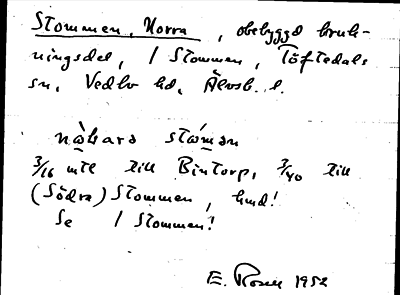 Stommen, Norra, obebyggd bruk-
ningsdel, / Stommen, Töftedals
sn, Vedbo hd, Älvsb. l.
nὰhara stά̀mαn
3/16 mtl till Bintorp, 3/40 till
(Södra) Stommen, hmd!
Se / Stommen!
E. Rosen 1952